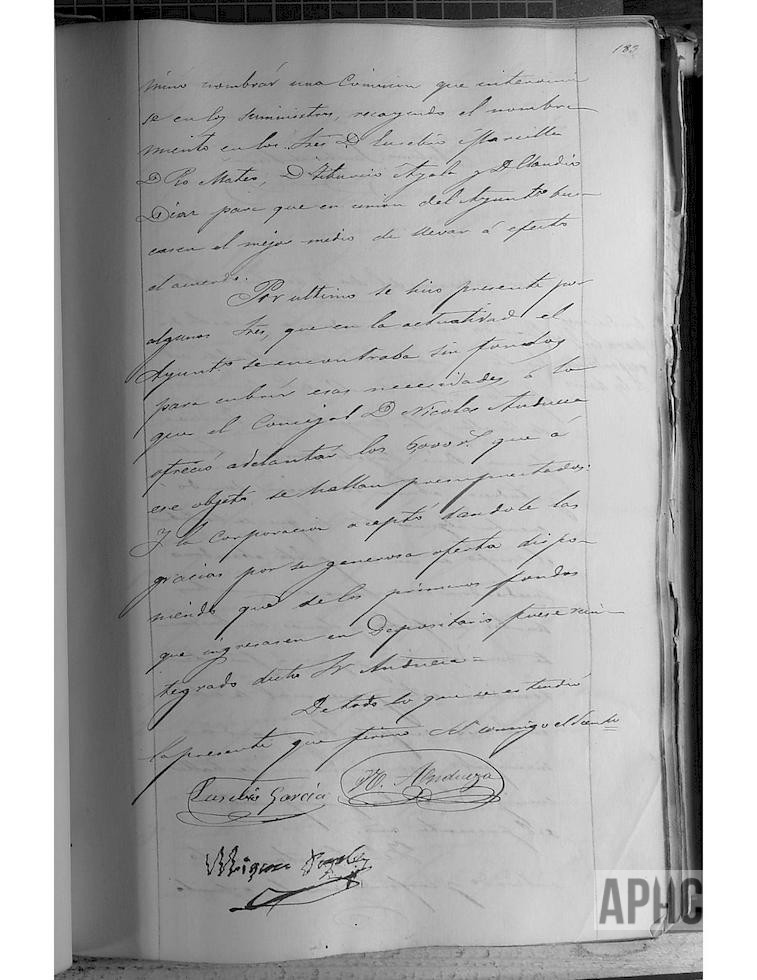 183
mino nombrár una Comision que intervinie
se en los suministros, recayendo el nombra
miento en los Sres D. Eusebio Marcilla
D Pio Mateo, D Ayala y D Claudio
Diaz para que en union del Ayuntº bus-
casen el mejor medio de llevar á efecto
el acuerdo.
Por ultimo se hizo presente por
algunos Sres, que en la actualidad el
Ayuntº se encontraba sin fondos
para cubrir esas necesidades, á lo
que el Concejal D Nicolas Andueza
ofreció adelantar los 6,000 rs. que á
ese objeto se hallan presupuestados.
Y la Corporacion aceptó dandole las
gracias por su generosa oferta dispo-
niendo que de los primeros fondos
que ingresasen en Depositaria fuese rein-
tegrado dicho Sr Andueza =
De todo lo que se estendió
la presente que firmo
Eusebio García
N. Andueza
Miguel
APHC